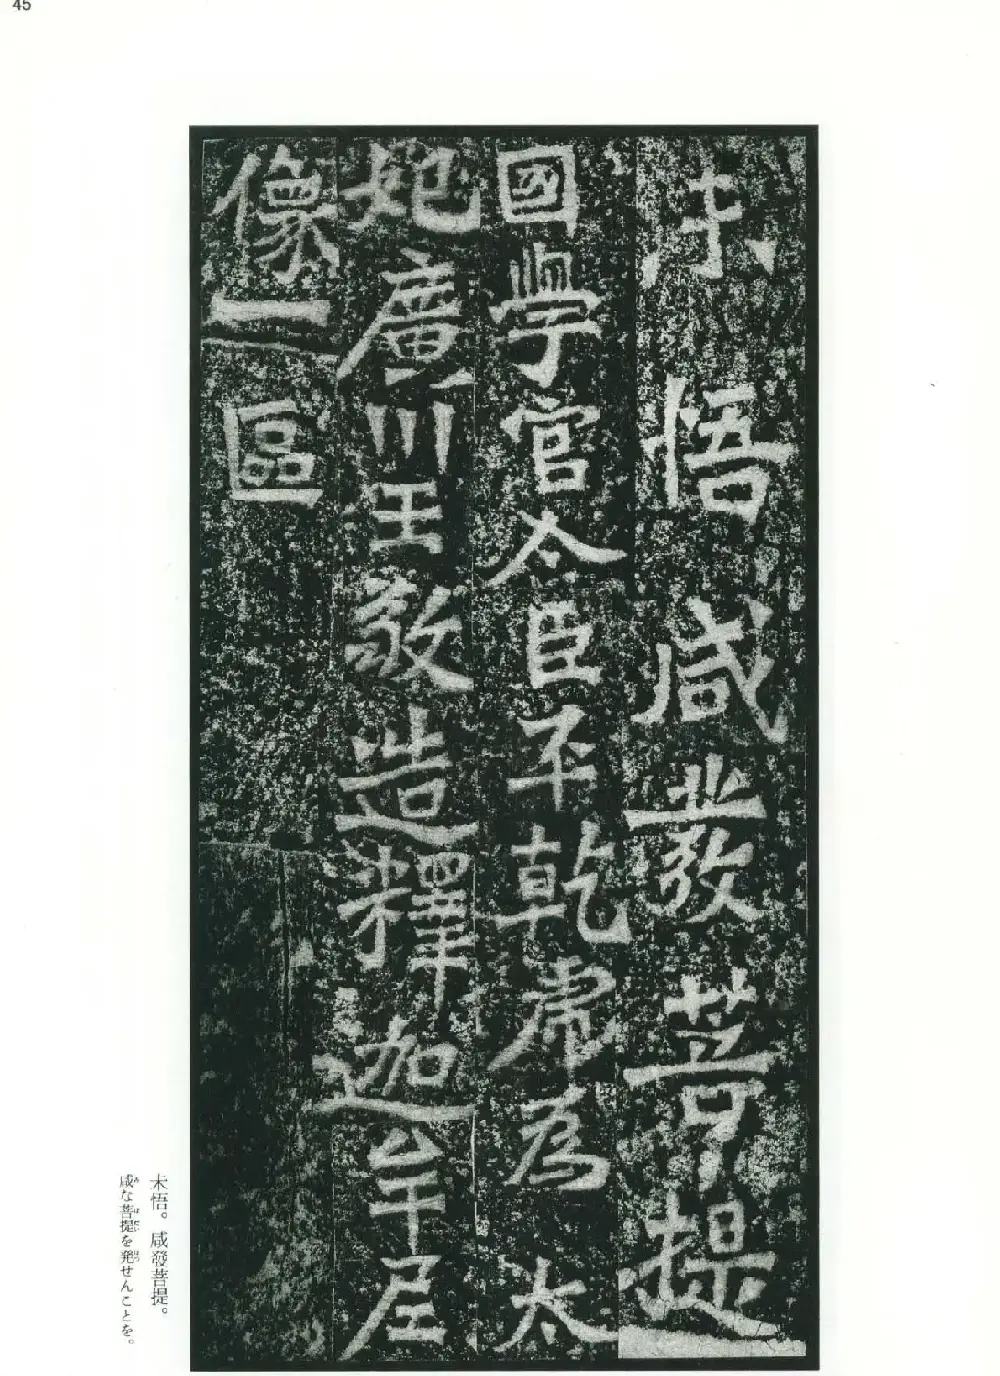 45
未悟咸發菩提
國學官令臣平乾虎為太
妃廣川王敬造釋迦牟尼
像一區
未悟。咸發菩提。
咸な菩提を発せんことを。